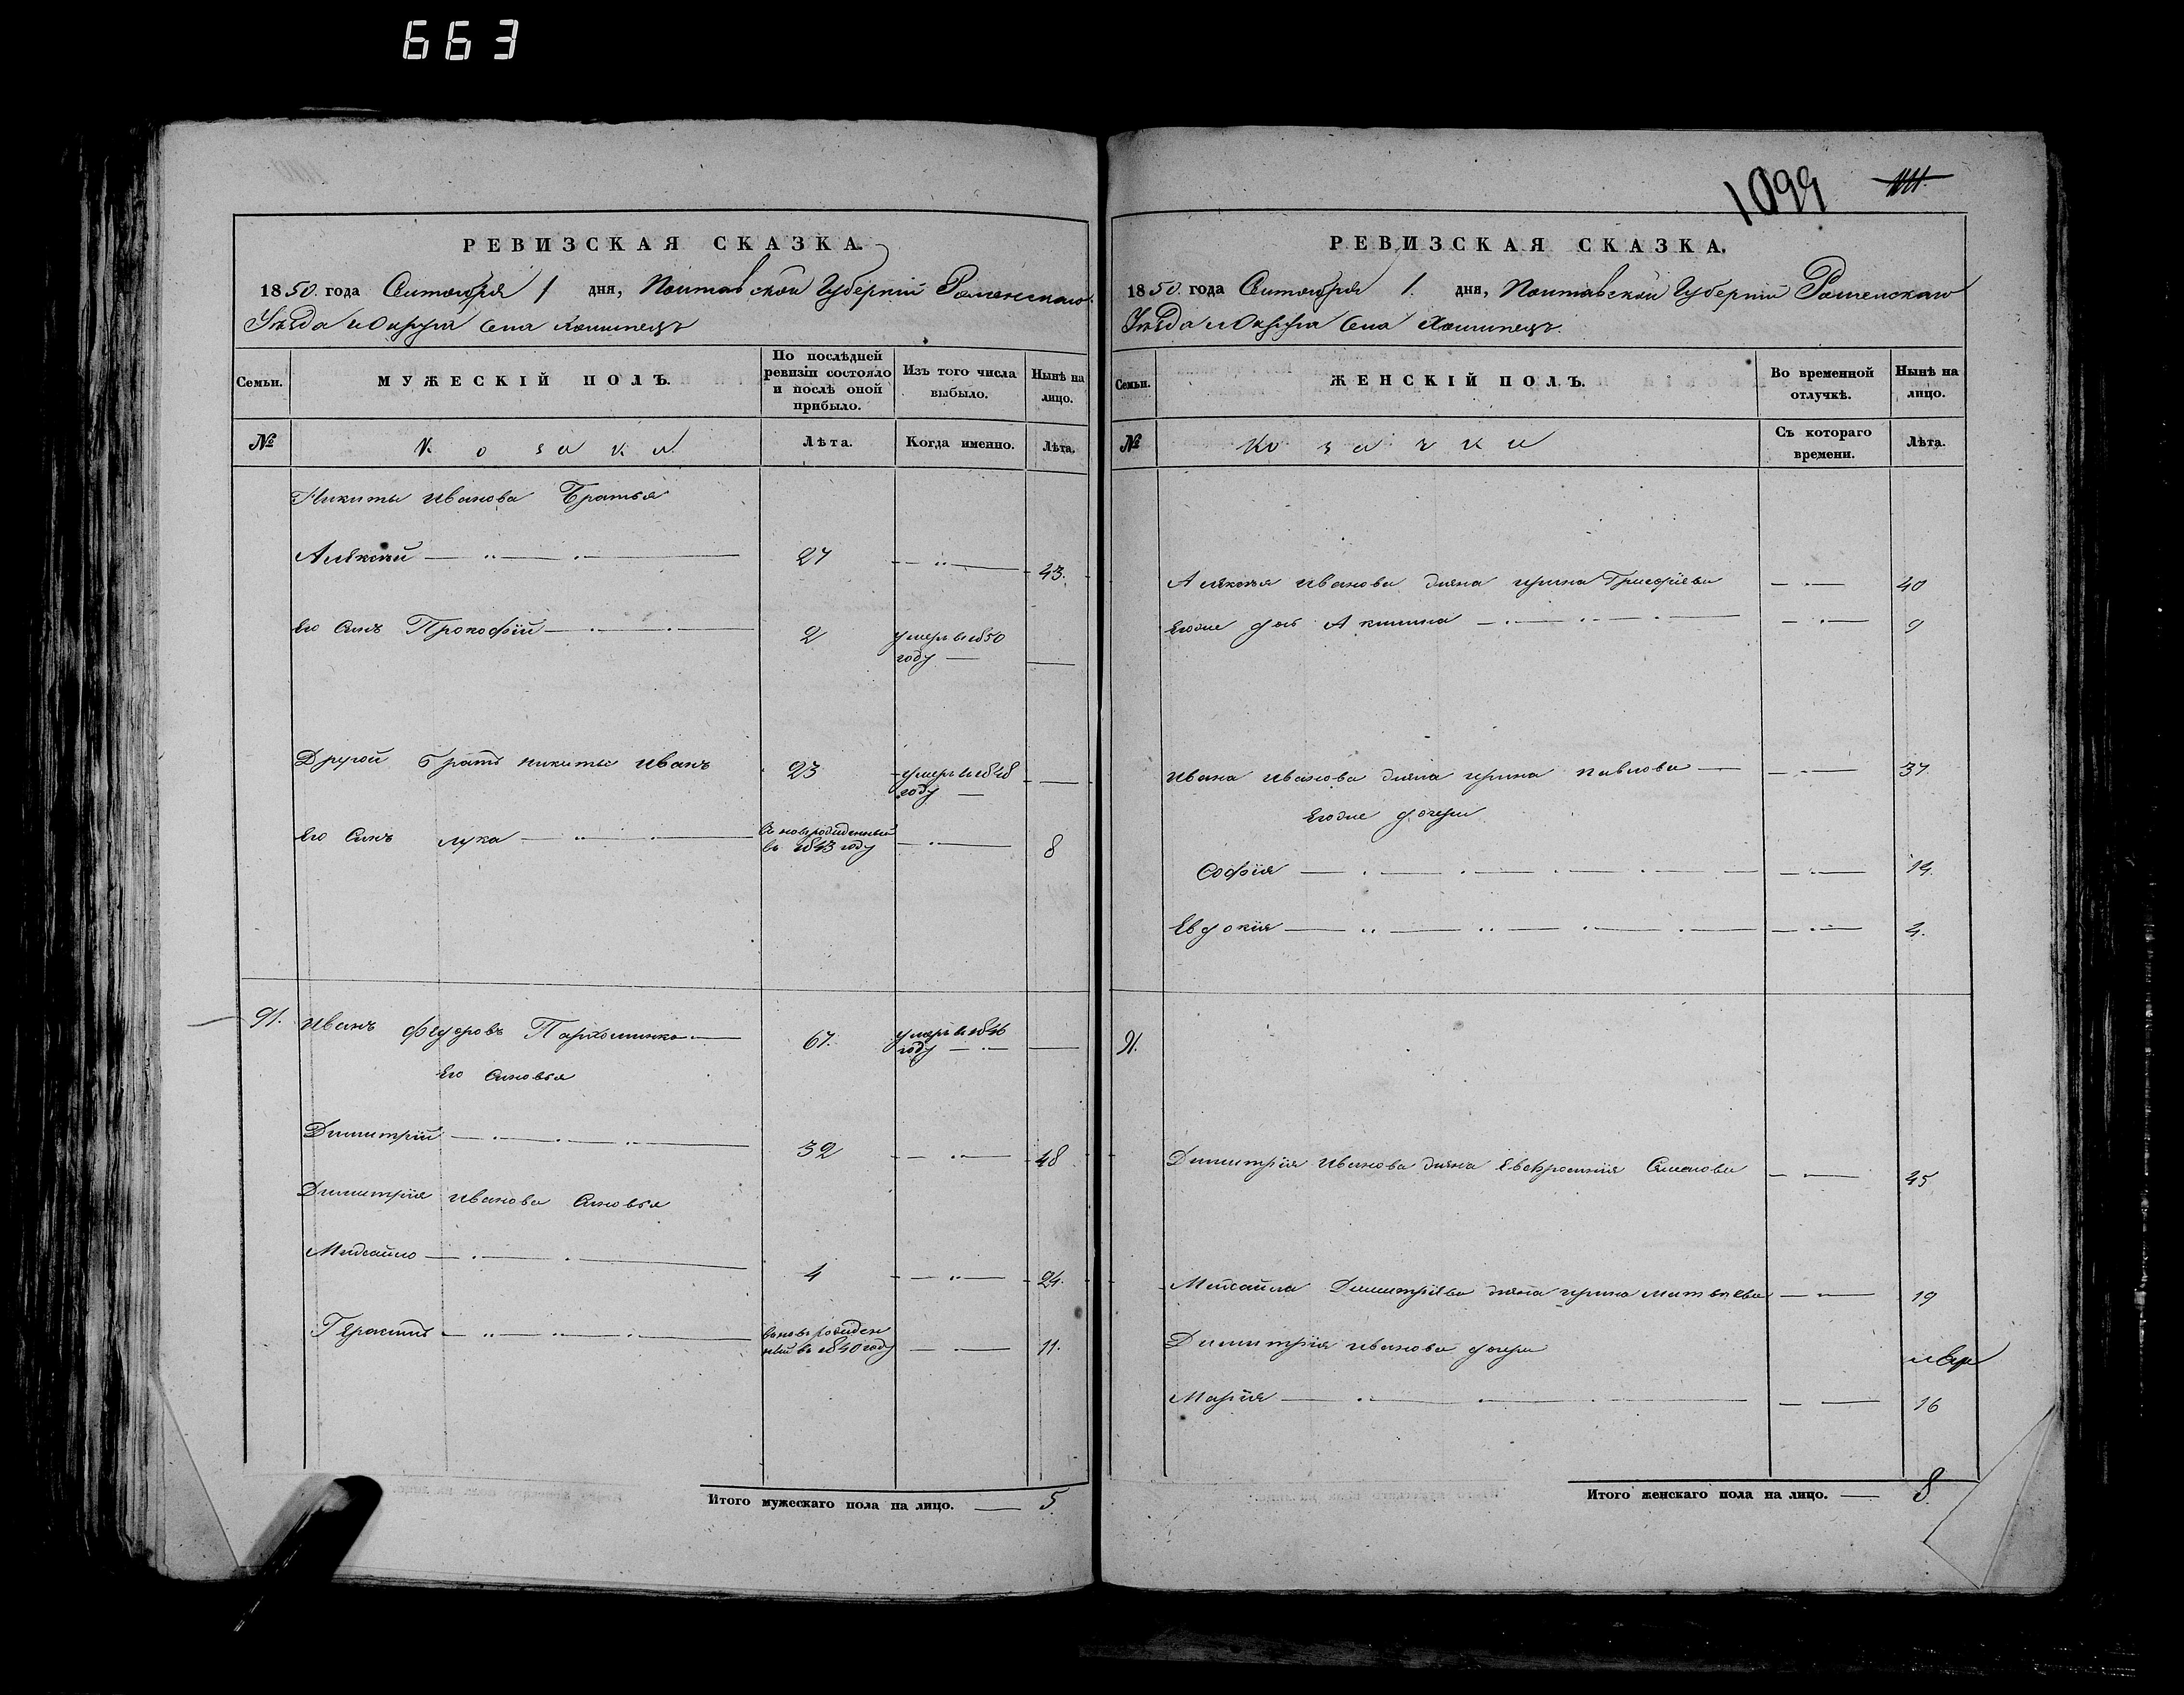 663
РЕВИЗСКАЯ СКАЗКА.
1850 года Сентября 1 дня, Полтавской Губерніи Роменскаго
Уѣзда и Округа Села
МУЖЕСКІЙ ПОЛЪ.
Семьи.
По послѣдней ревизіи состояло и послѣ оной прибыло.
Изъ того числа выбыло.
Нынѣ на лицо.
№
Козаки
Лѣта.
Когда именно.
Лѣта.
Никиты Иванова Братья
Алѣксѣй 27 43.
Его Сынъ Прокофій 2 умеръ в 1850
году
Другой братъ никиты Иванъ 23 умеръ в 1848
году
Его Сынъ лука вновьрожденный
въ 1843 году 8
91. Иванъ федоровъ Пархоменко 67. умеръ в 1846
году
Его Сыновья
Димитрій 32 48
Димитрія Иванова Сыновья
Михайло 4 24.
вновьрожден
ный въ 1840 году 11.
Итого мужескаго пола на лицо. 5.
1099
РЕВИЗСКАЯ СКАЗКА.
1850 года Сентября 1. дня, Полтавской Губерніи Роменскаго
Уѣзда и Округа Села
Семьи.
ЖЕНСКІЙ ПОЛЪ.
Во временной отлучкѣ.
Нынѣ на лицо.
№
Козачки
Съ котораго времени.
Лѣта.
Алѣксѣя Иванова жена ирина Григорїева 40
Егоже дочь Акилина 9
Ивана Иванова жена ирина павлова 37.
Егоже дочери
Софія 14.
Евдокія 4.
91.
Димитрія Иванова жена Евфросинія Семенова 45
Михайла Димитріева жена ирина матвѣева 19
Димитрія иванова дочери
Марія 16
Итого женскаго пола на лицо. 8.